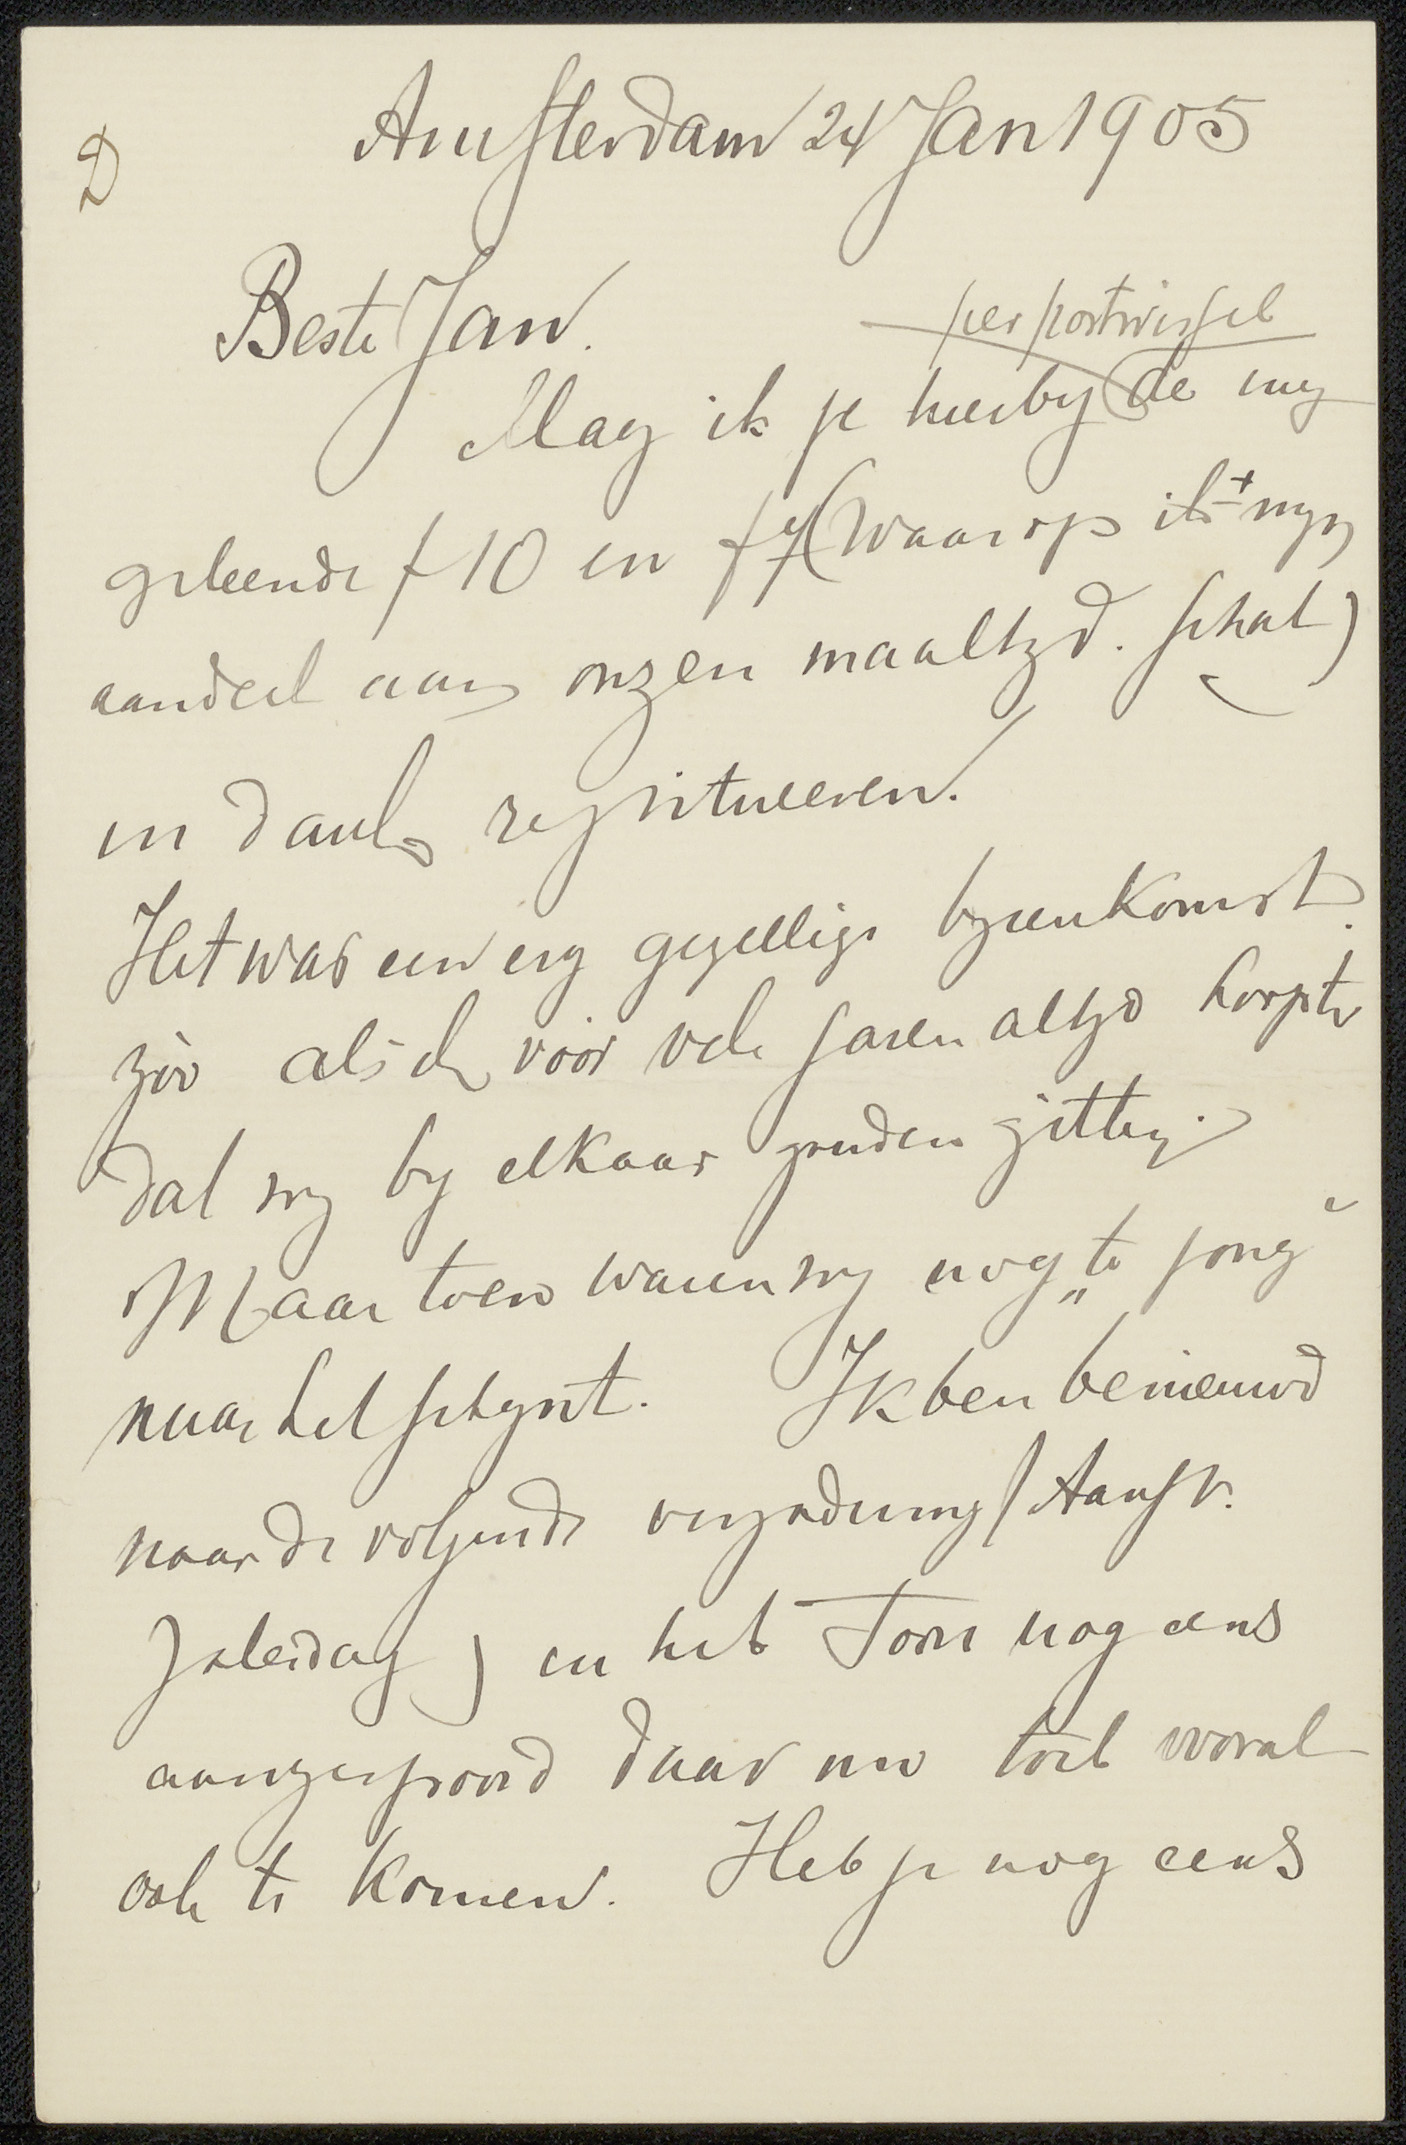 D
Amsterdam 24 Jan 1905
Beste Jan.
per postwissel
Mag ik je hierby de my
geleende f 10 en f 7 (waarop ik ± myn
aandeel aan onzen maaltyd. schat)
in dank restitueeren.
Het was een erg gezellige byeenkomst.
zóó als ik vóór vele jaren altyd hoopte
dat wy by elkaar zouden zitten.
Maar toen waren wy nog „te jong"
naar het schynt. Ik ben benieuwd
naar de volgende vergadering (Aanst.
Zaterdag) en heb Toon nog eens
aangespoord daar nu toch vooral
ook te komen. Heb je nog eens